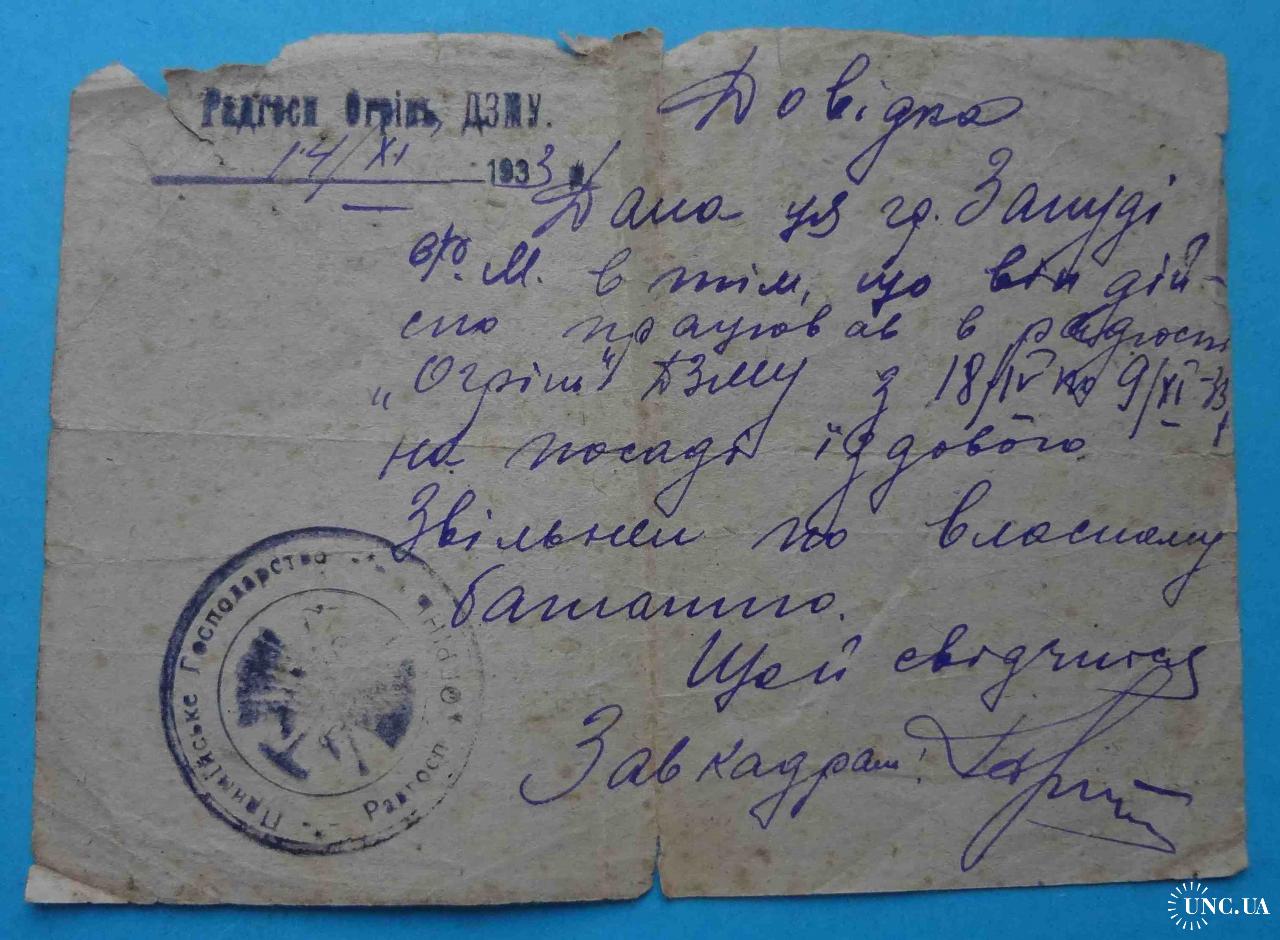 Радгосп Огрінь, ДЗМУ.
14/XI 1933
Довідка
Дана ця гр.
М. в тім, що він дій-
сно працював в радгоспі
„Огрінь" ДЗМУ з 18/IV по 9/XI-33
на посаді їздового.
Звільнен по власному
бажанню.
Що й свідчиться
Зав кадрам:
Господарство
Радгосп Огрінь
UNC.UA